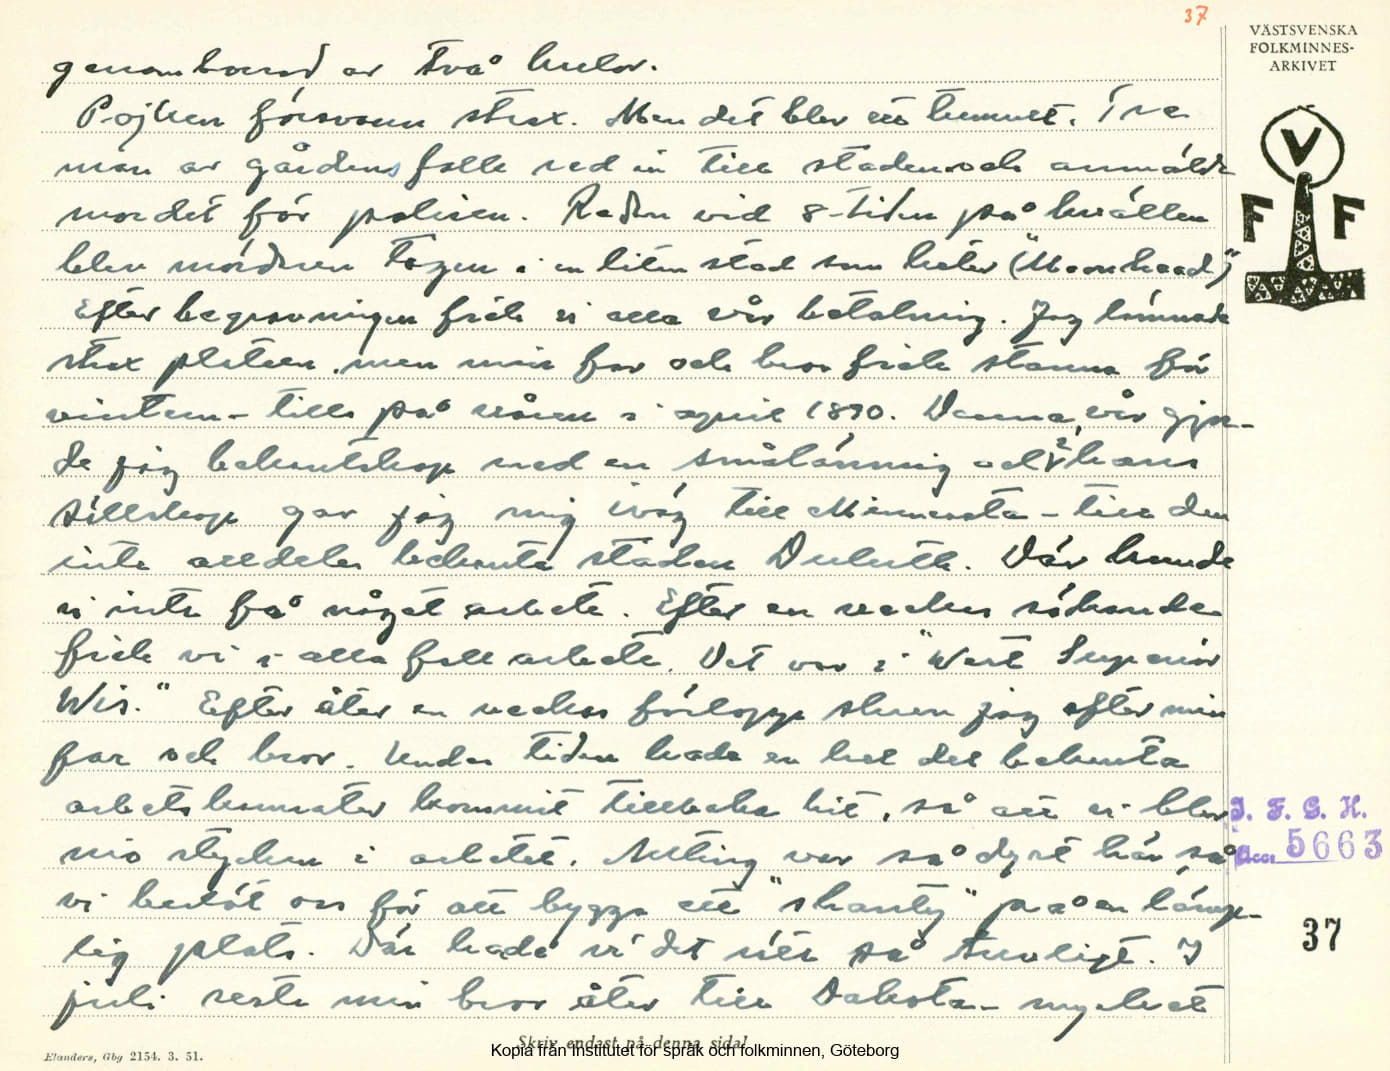 37
VÄSTSVENSKA
FOLKMINNES-
ARKIVET
V
F F
genomborrad av två kulor.
Pojken försvann strax. Men det blev ett himmel. Två
man av gårdens folk red in till staden och anmälde
mordet för polisen. Redan vid 8-tiden på kvällen
blev mördaren tagen i en liten stad som heter ("Moorhead")
Efter begravningen fick vi alla vår betalning. Jag lämnade
strax platsen, men min far och bror fick stanna för
vintern - tills på våren i april 1890. Denna vår gjor-
de jag bekantskap med en smålänning och i hans
sällskap gav jag mig iväg till Minnesota - till den
inte alldeles bekanta staden Duluth. Där kunde
vi inte få något arbete. Efter en veckas sökande
fick vi i alla fall arbete. Det var i "West Superior
Wis." Efter åter en veckas förlopp skrev jag efter min
far och bror. Under tiden hade en hel del bekanta
arbetskamrater kommit tillbaka hit, så att vi blev
nio stycken i arbetet. Allting var så dyrt här så
vi beslöt oss för att bygga ett "shanty" på en lämp-
lig plats. Där hade vi det rätt så trevligt. I
juli reste min bror åter till Dakota - mycket
I. F. G. H.
Acc. 5663
37
Skriv endast på denna sida!
Elanders, Gbg 2154. 3. 51.
Kopia från Institutet för språk och folkminnen, Göteborg